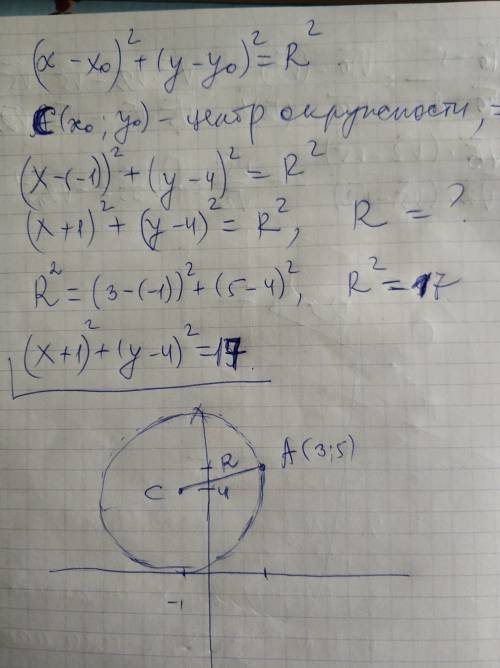 (x - x₀)² + (y - y₀)² = R²
C(x₀; y₀) - центр окружности,
(x-(-1))² + (y - 4)² = R²
(x+1)² + (y-4)² = R², R = ?
R² = (3-(-1))² + (5-4)², R² = 17
(x+1)² + (y-4)² = 17.
R A(3;5)
C 4
-1